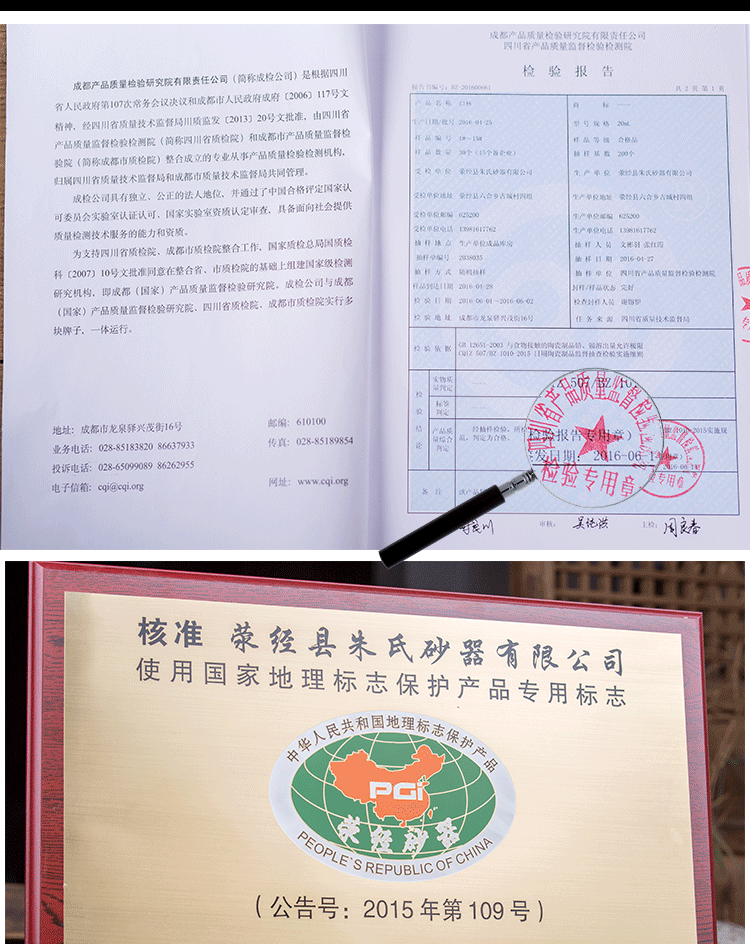 成都产品质量检验研究院有限责任公司（简称成检公司）是根据四川
省人民政府第107次常务会议决议和成都市人民政府成府［2006］117号文
精神，经四川省质量技术监督局川质监发［2013］20号文批准，由四川省
产品质量监督检验检测院（简称四川省质检院）和成都市产品质量监督检
验院（简称成都市质检院）整合成立的专业从事产品质量检验检测机构，
归属四川省质量技术监督局和成都市质量技术监督局共同管理。
成检公司具有独立、公正的法人地位，并通过了中国合格评定国家认
可委员会实验室认证认可、国家实验室资质认定审查，具备面向社会提供
质量检测技术服务的能力和资质。
为支持四川省质检院、成都市质检院整合工作，国家质检总局国质检
科［2007］10号文批准同意在整合省、市质检院的基础上组建国家级检测
研究机构，即成都（国家）产品质量监督检验研究院。成检公司与成都
（国家）产品质量监督检验研究院、四川省质检院、成都市质检院实行多
块牌子，一体运行。
地址：成都市龙泉驿兴茂街16号
邮编：610100
业务电话：028-85183820 86637933
传真：028-85189854
投诉电话：028-65099089 86262955
电子信箱：cqi@cqi.org
网址：www.cqi.org
成都产品质量检验研究院有限责任公司
四川省产品质量监督检验检测院
检 验 报 告
共 2 页 第 1 页
产 品 名 称 口杯
商 标 ——
生产日期/批号 2016-04-25
型 号 规 格 20mL
样 品 编 号 1#～15#
样 品 等 级 合格品
抽 样 基 数 200个
受 检 单 位 荥经县朱氏砂器有限公司
生 产 单 位 荥经县朱氏砂器有限公司
受检单位地址 荥经县六合乡古城村四组
生产单位地址 荥经县六合乡古城村四组
受检单位邮编 625200
生产单位邮编 625200
受检单位电话 13981617762
生产单位电话 13981617762
抽 样 地 点 生产单位成品库房
抽 样 人 文彬羽 张红霞
抽样单编号 2038035
抽 样 日 期 2016-04-27
抽 样 方 式 随机抽样
抽 样 单 位 四川省产品质量监督检验检测院
样品到达日期 2016-04-28
封样/样品状态 完好
检 验 日 期 2016-06-01～2016-06-02
检查封样人员
检 验 地 址 成都市龙泉驿兴茂街16号
任 务 来 源 四川省质量技术监督局
检 验 依 据
GB 12651-2003 与食物接触的陶瓷制品铅、镉溶出量允许极限
CQIZ 507/BZ 1010-2015 日用陶瓷制品监督抽查检验实施细则
检 验 结 论
实物质量判定 ——
标签判定 ——
产品质量综合判定
检验报告专用章）
发日期：2016-06-1
检验专用章
备 注
审核：
主检：
核准 荥经县朱氏砂器有限公司
使用国家地理标志保护产品专用标志
中华人民共和国地理标志保护产品
PGi
荥经砂器
PEOPLE'S REPUBLIC OF CHINA
（公告号：2015年第109号）